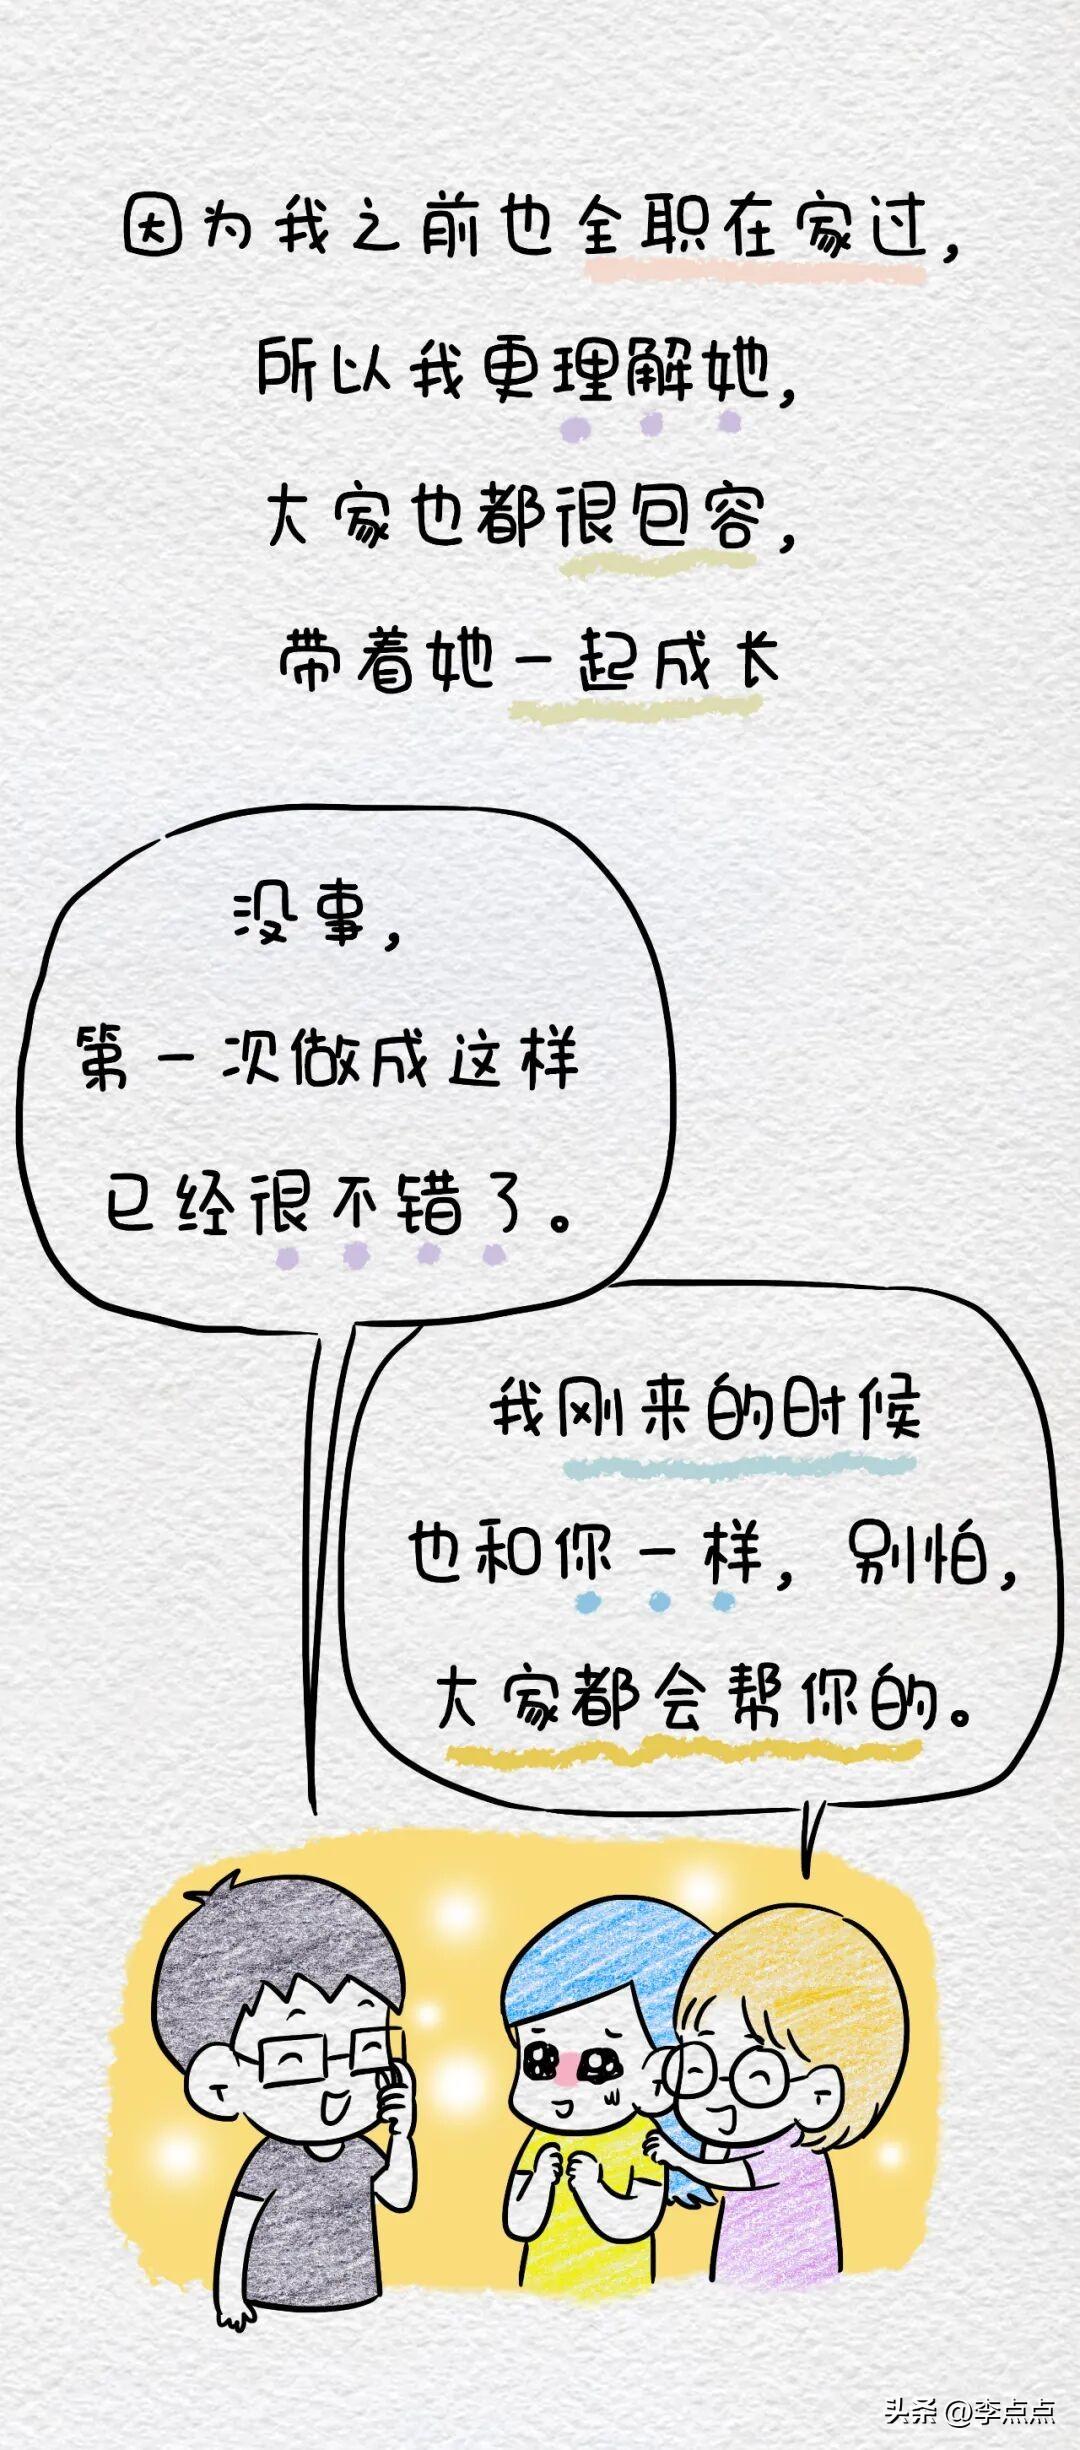 因为我之前也全职在家过,
所以我更理解她,
大家也都很包容,
带着她一起成长
没事,
第一次做成这样
已经很不错了。
我刚来的时候
也和你一样, 别怕,
大家都会帮你的。
头条 @李点点